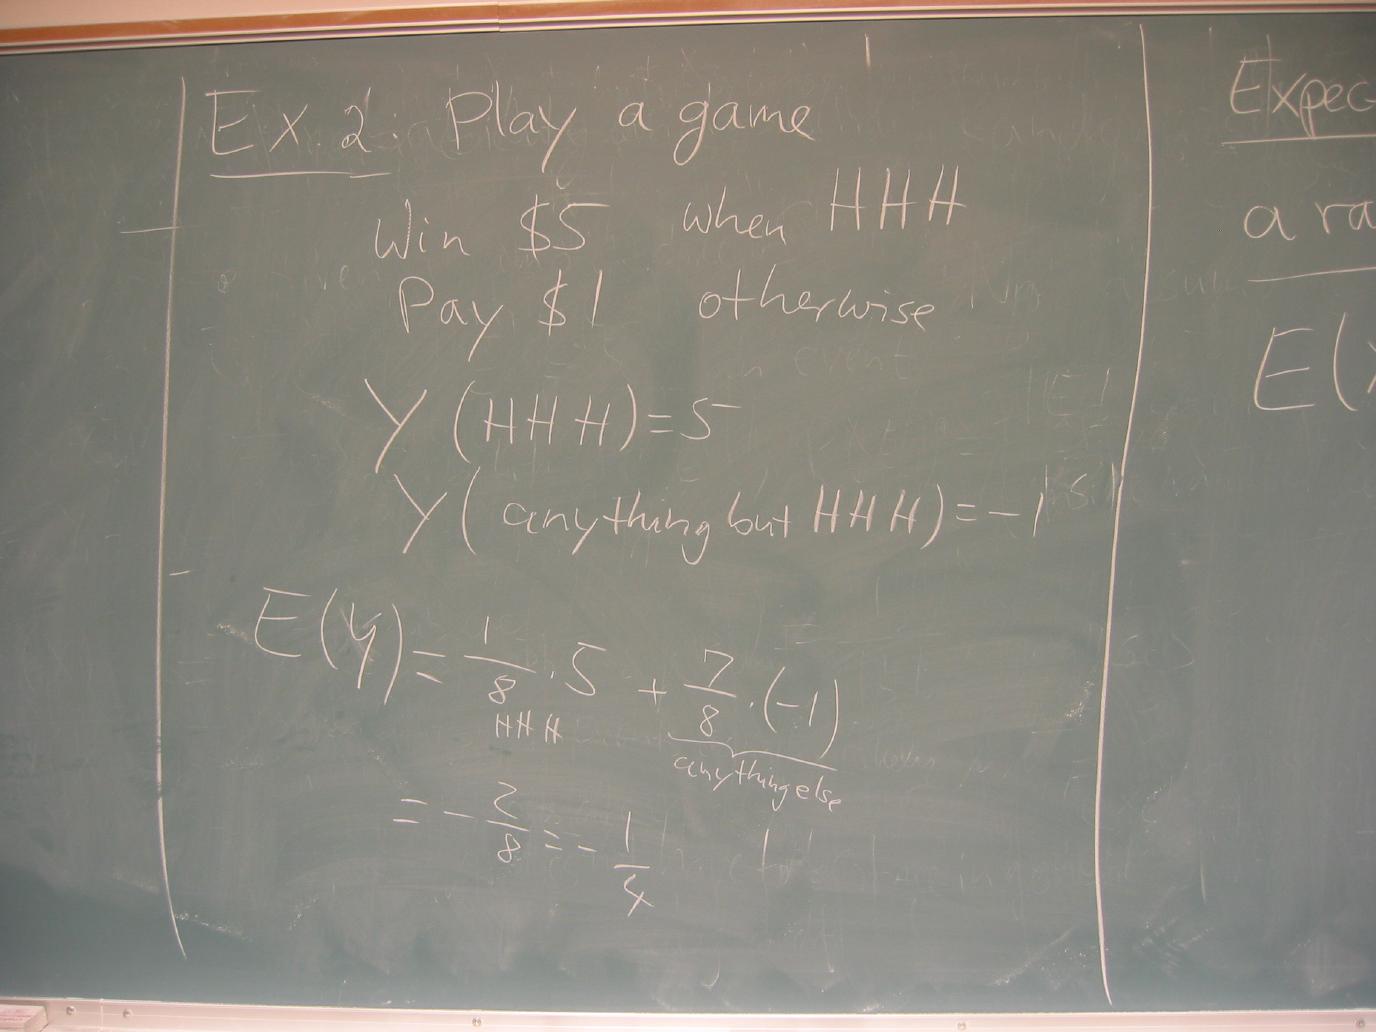 Ex. 2: Play a game
Win $5 when HHH
Pay $1 otherwise
Y (HHH) = 5
Y ( anything but HHH) = -1
E(Y) = 1/8 · 5 + 7/8 · (-1)
HHH anything else
= - 2/8 = - 1/4
Expec
a ra
E(